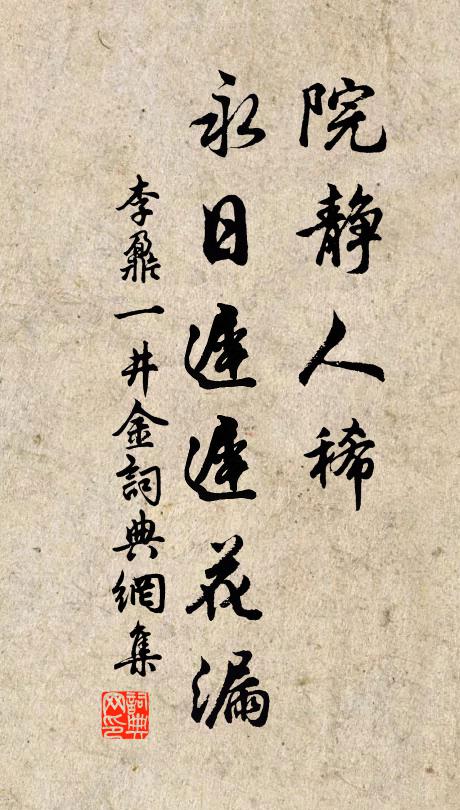 院静人稀
永日遲遲花漏
李鼐一井金詞典網集
詞典网印